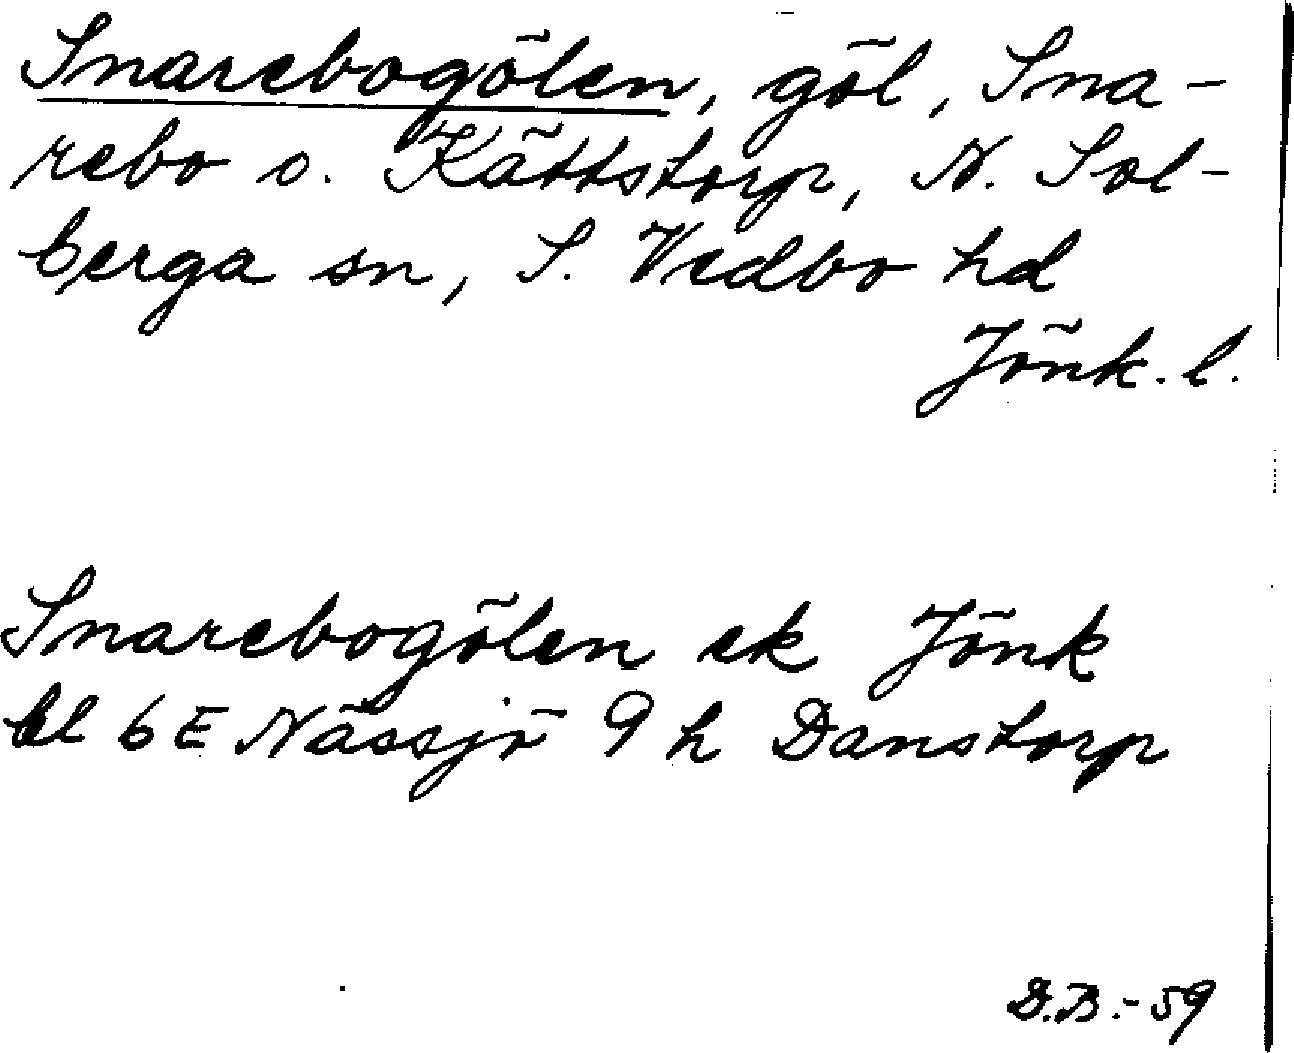 Snarebogölen, göl, Sna-
rebo o. Kättstorp, N. Sol-
berga sn, S. Vedbo hd
Jönk. l.
Snarebogölen ek Jönk
bl 6E Nässjö 9 h Danstorp
D.B.-59